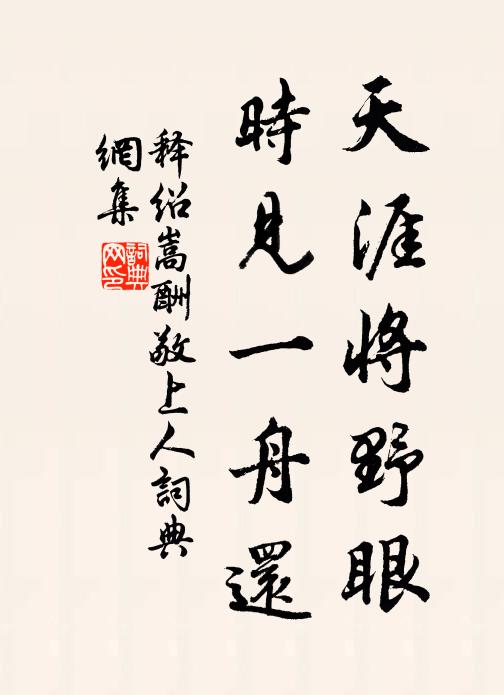 天涯将野眼
時見一舟還
释绍嵩酬敬上人詞典
網集
詞典
网印